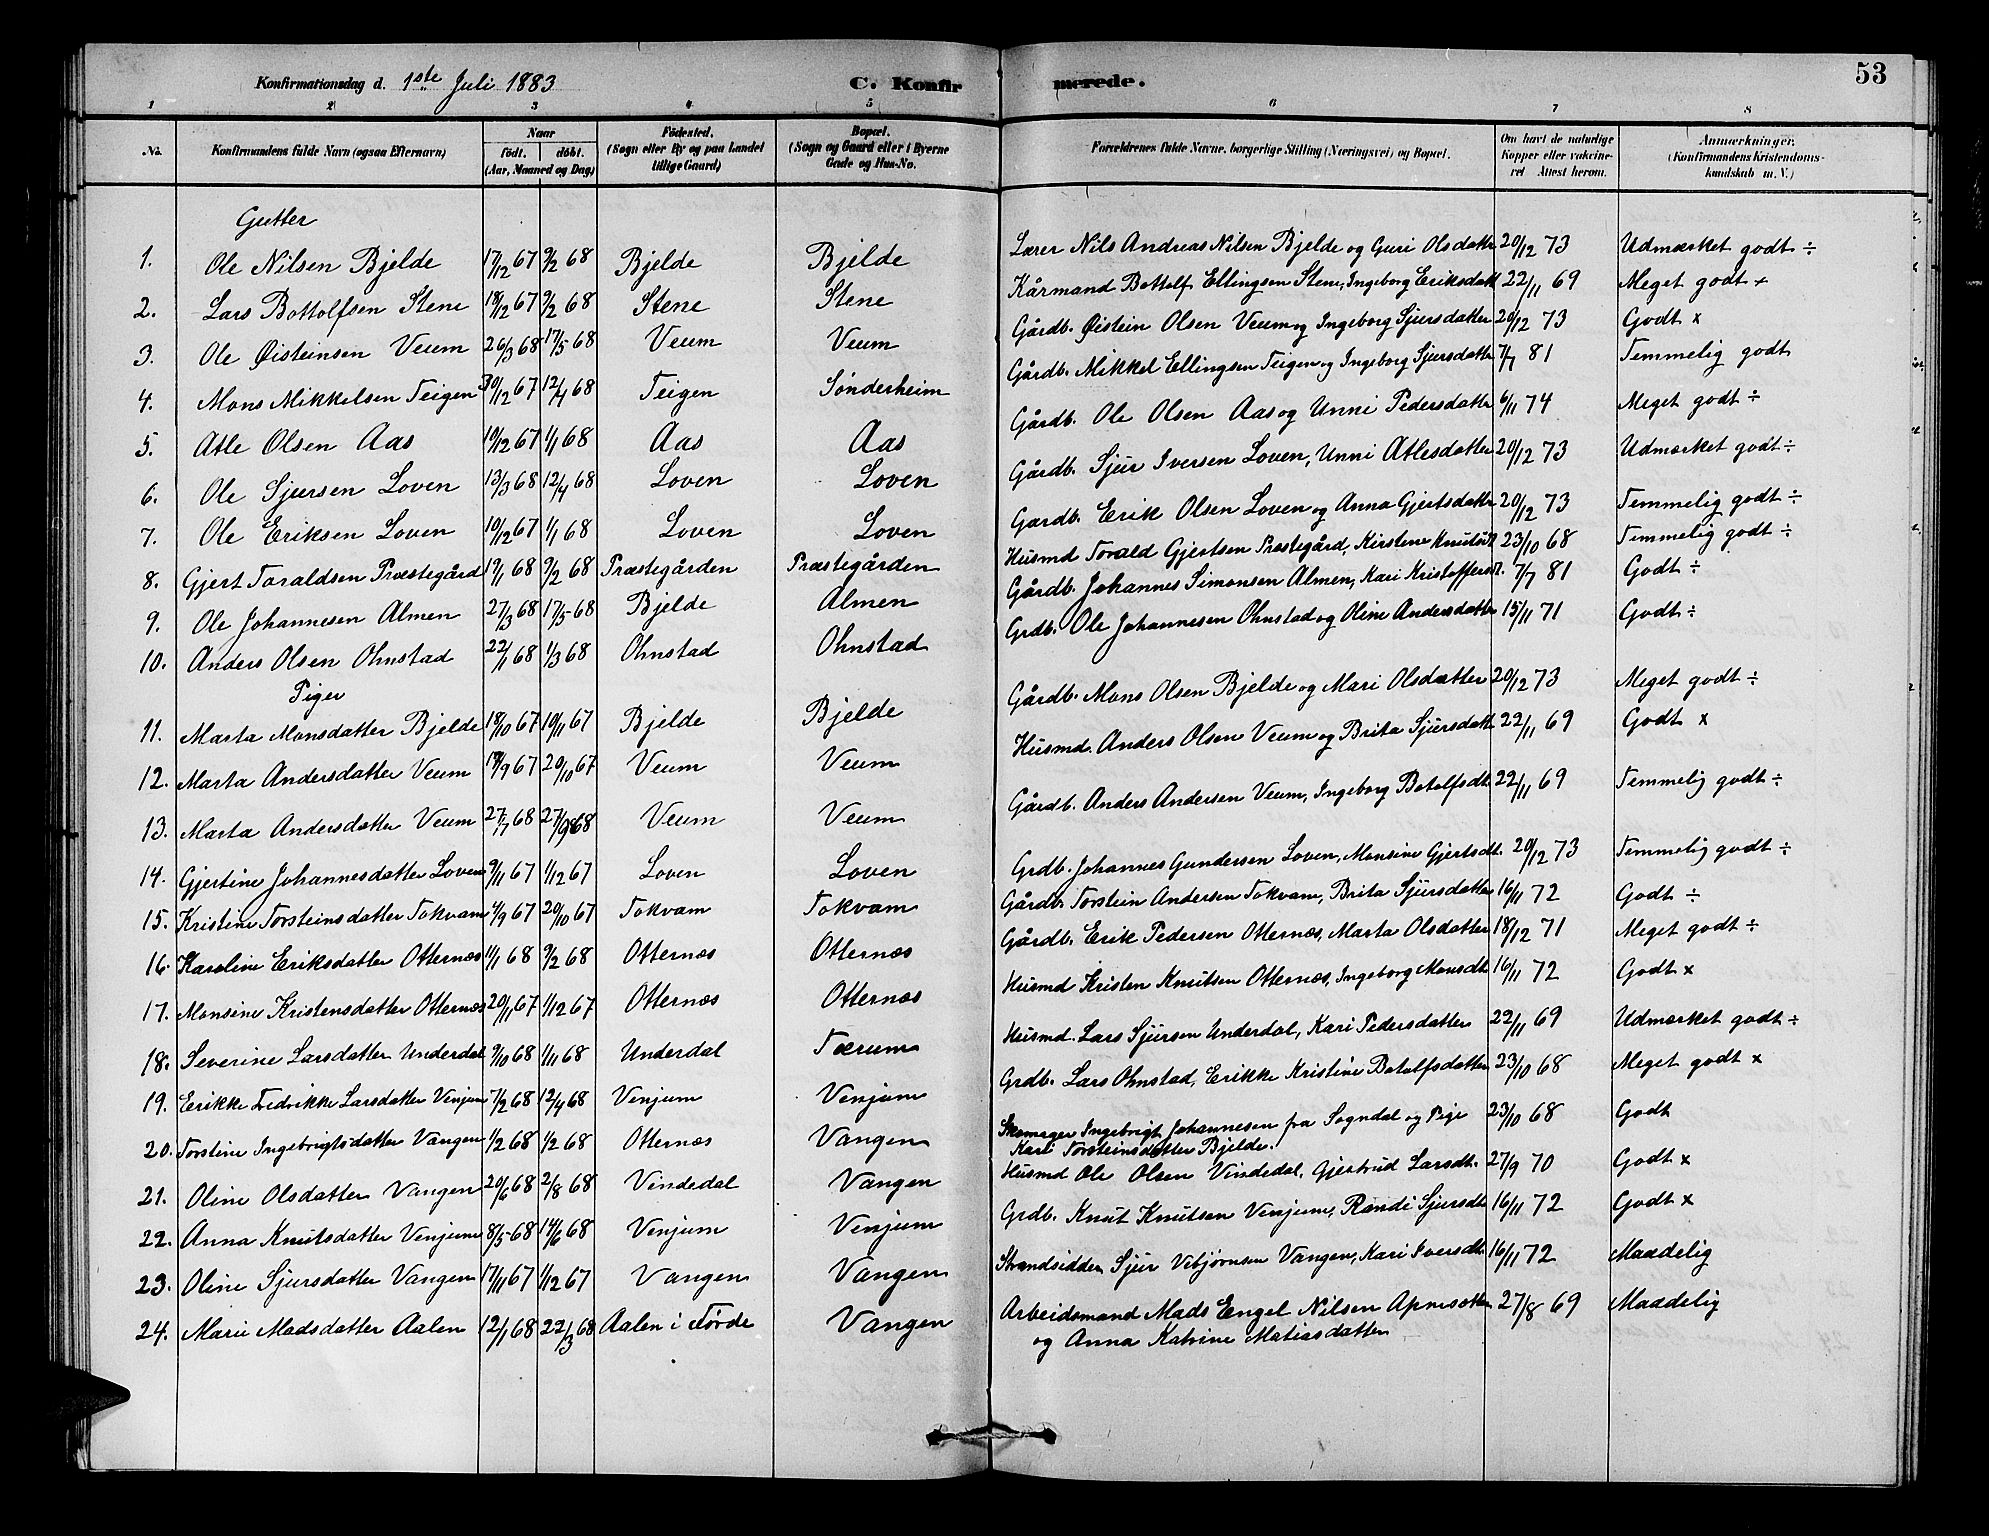 Konfirmationsdag d. 1ste Juli 1883 C. Konfirmerede. 53
1 2 3 4 5 6 7 8
No. Konfirmandens fulde Navn (ogsaa Efternavn) Naar födt. döbt. (Aar, Maaned og Dag) Födested. (Sogn eller By og paa Landet tillige Gaard) Bopæl. (Sogn og Gaard eller i Byerne Gade og Hus-No. Forældrenes fulde Navne, borgerlige Stilling (Næringsvei) og Bopæl. Om havt de naturlige Kopper eller vakcineret Attest herom. Anmærkninger. (Konfirmandens Kristendomskundskab m. V.)
Gutter
1. Ole Nilsen Bjelde 17/12 67 9/2 68 Bjelde Bjelde Lærer Nils Andreas Nilsen Bjelde og Guri Olsdattr 20/12 73 Udmærket godt ÷
2. Lars Bottolfsen Stene 18/12 67 9/2 68 Stene Stene Kårmand Bottolf Ellingsen Stene, Ingeborg Eriksdatt 22/11 69 Meget godt ×
3. Ole Øisteinsen Veum 26/3 68 17/5 68 Veum Veum Gårdb. Øistein Olsen Veum og Ingeborg Sjursdatter 20/12 73 Godt ×
4. Mons Mikkelsen Teigen 30/12 67 12/4 68 Teigen Sønderheim Gårdb. Mikkel Ellingsen Teigen og Ingeborg Sjursdatter 7/7 81 Temmelig godt
5. Atle Olsen Aas 10/12 67 1/1 68 Aas Aas Gårdb. Ole Olsen Aas og Unni Pedersdattr 6/11 74 Meget godt ÷
6. Ole Sjursen Loven 13/3 68 12/4 68 Loven Loven Gårdb. Sjur Iversen Loven, Unni Atlesdatter 20/12 73 Udmærket godt ÷
7. Ole Eriksen Loven 10/12 67 1/1 68 Loven Loven Gardb. Erik Olsen Loven og Anna Gjertsdatt 20/12 73 Temmelig godt ÷
8. Gjert Toraldsen Præstegård 19/1 68 9/2 68 Præstegården Præstegården Husmd Torald Gjertsen Præstegård, Kirstene 23/10 68 Temmelig godt ÷
9. Ole Johannesen Almen 27/3 68 17/5 68 Bjelde Almen Gårdb. Johannes Simonsen Almen, Kari 7/7 81 Godt ÷
10. Anders Olsen Ohnstad 22/1 68 1/3 68 Ohnstad Ohnstad Grdb. Ole Johannesen Ohnstad og Oline Andersdatter 15/11 71 Godt ÷
Piger
11. Marta Monsdatter Bjelde 18/10 67 10/11 67 Bjelde Bjelde Gårdb. Mons Olsen Bjelde og Mari Olsdatter 20/12 73 Meget godt ÷
12. Marta Andersdatter Veum 67 20/10 67 Veum Veum Husmd. Anders Olsen Veum og Brita Sjursdatt 22/11 69 Godt ×
13. Marta Andersdatter Veum 27/7 68 27/9 68 Veum Veum Gårdb. Anders Andersen Veum, Ingeborg Botolfsdt. 22/11 69 Temmelig godt ÷
14. Gjertine Johannesdatter Loven 9/11 67 1/12 67 Loven Loven Grdb. Johannes Gundersen Loven, Monsine Gjertsdt. 20/12 73 Temmelig godt ÷
15. Kristine Torsteinsdatter Tokvam 67 20/10 67 Tokvam Tokvam Gårdb. Torstein Andersen Tokvam, Brita Sjursdatter 16/11 72 Godt ÷
16. Karoline Eriksdatter Otternæs 1/1 68 9/2 68 Otternæs Otternæs Gårdb. Erik Pedersen Otternæs, Marta Olsdatter 18/12 71 Meget godt ÷
17. Monsine Kristensdatter Otternæs 20/11 67 1/12 67 Otternæs Otternæs Husmd Kristen Knutsen Otternæs, Ingeborg Monsdt 16/11 72 Godt ×
18. Severine Larsdatter Underdal 9/10 68 1/11 68 Underdal Tærum Husmd. Lars Sjursen Underdal, Kari Pedersdatter 22/11 69 Udmærket godt ÷
19. Erikke Fredrikke Larsdatter Venjum 7/2 68 12/4 68 Venjum Venjum Grdb. Lars Ohnstad, Erikke Kristine Botolfsdatter 23/10 68 Meget godt ×
20. Torstine Ingebrigtsdatter Vangen 1/2 68 1/2 68 Otternæs Vangen Skomager Ingebrigt Johannesen fra Sogndal og Pige 23/10 68 Godt
Kari Torsteinsdatter Bjelde.
21. Oline Olsdatter Vangen 20/6 68 2/8 68 Vindedal Vangen Husmd Ole Olsen Vindedal, Gjertrud Larsdt. 27/9 70 Godt ×
22. Anna Knutsdatter Venjum 8/5 68 14/6 68 Venjum Venjum Grdb. Knut Knutsen Venjum, Randi Sjursdt 16/11 72 Godt ×
23. Oline Sjursdatter Vangen 17/11 67 1/12 67 Vangen Vangen Strandsidder Sjur Vibjørnsen Vangen, Kari Iversdt. 16/11 72 Maadelig
24. Marie Madsdatter Aalen 12/1 68 22/3 68 Aalen i Førde Vangen Arbeidsmand Mads Engel Nilsen 27/8 69 Maadelig
og Anna Katrine Matiasdatter